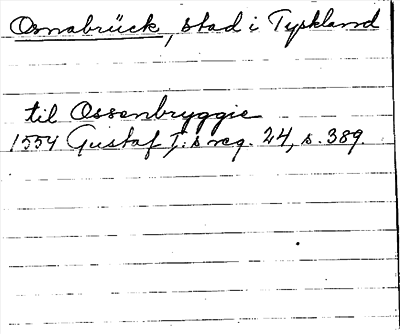 Osnabrück, stad i Tyskland
til Ossenbryggie
1554 Gustaf I:s reg. 24, s. 389.